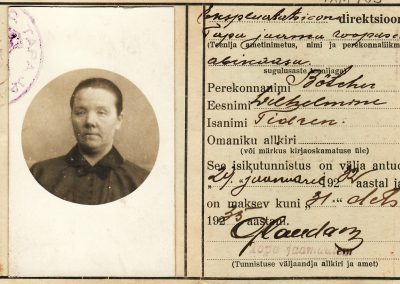 direktsioon
Tapa jaama
(Teenija ametinimetus, nimi ja perekonnaliikm
abikaasa
sugulusaste teenijaga)
Perekonnanimi Bötcher
Eesnimi Wilhelmine
Isanimi Tidren.
Omaniku allkiri
(või märkus kirjaoskamatuse üle)
See isikutunnistus on välja antud
"27. jaanuaril 1932 aastal ja
on maksev kuni "31." dets
1933 aastani.
(Tunnistuse väljaandja allkiri ja amet)